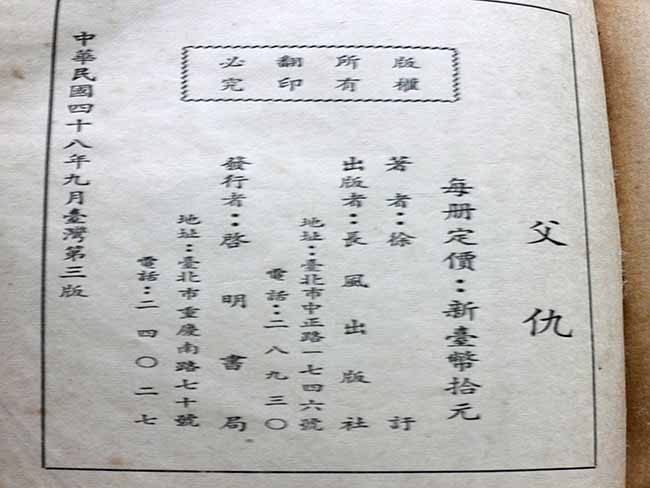 父仇
版權
所有
翻印
必究
每册定價：新臺幣拾元
著者：徐訏
出版者：長風出版社
地址：臺北市中正路一七四六號
電話：二八九三〇
發行者：啓明書局
地址：臺北市重慶南路七十號
電話：二四〇二七
中華民國四十八年九月臺灣第三版